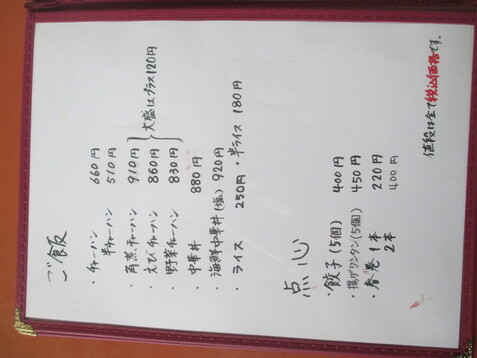 ご飯
・チャーハン 660円
半チャーハン 510円
・角煮チャーハン 910円
・えびチャーハン 860円
・野菜チャーハン 830円
大盛はプラス120円
・中華丼 880円
・海鮮中華丼(塩) 920円
・ライス 250円・半ライス 180円
点心
・餃子(5個) 400円
・揚げワンタン(5個) 450円
・春巻 1本 220円
2本 400円
値段は全て税込価格です。